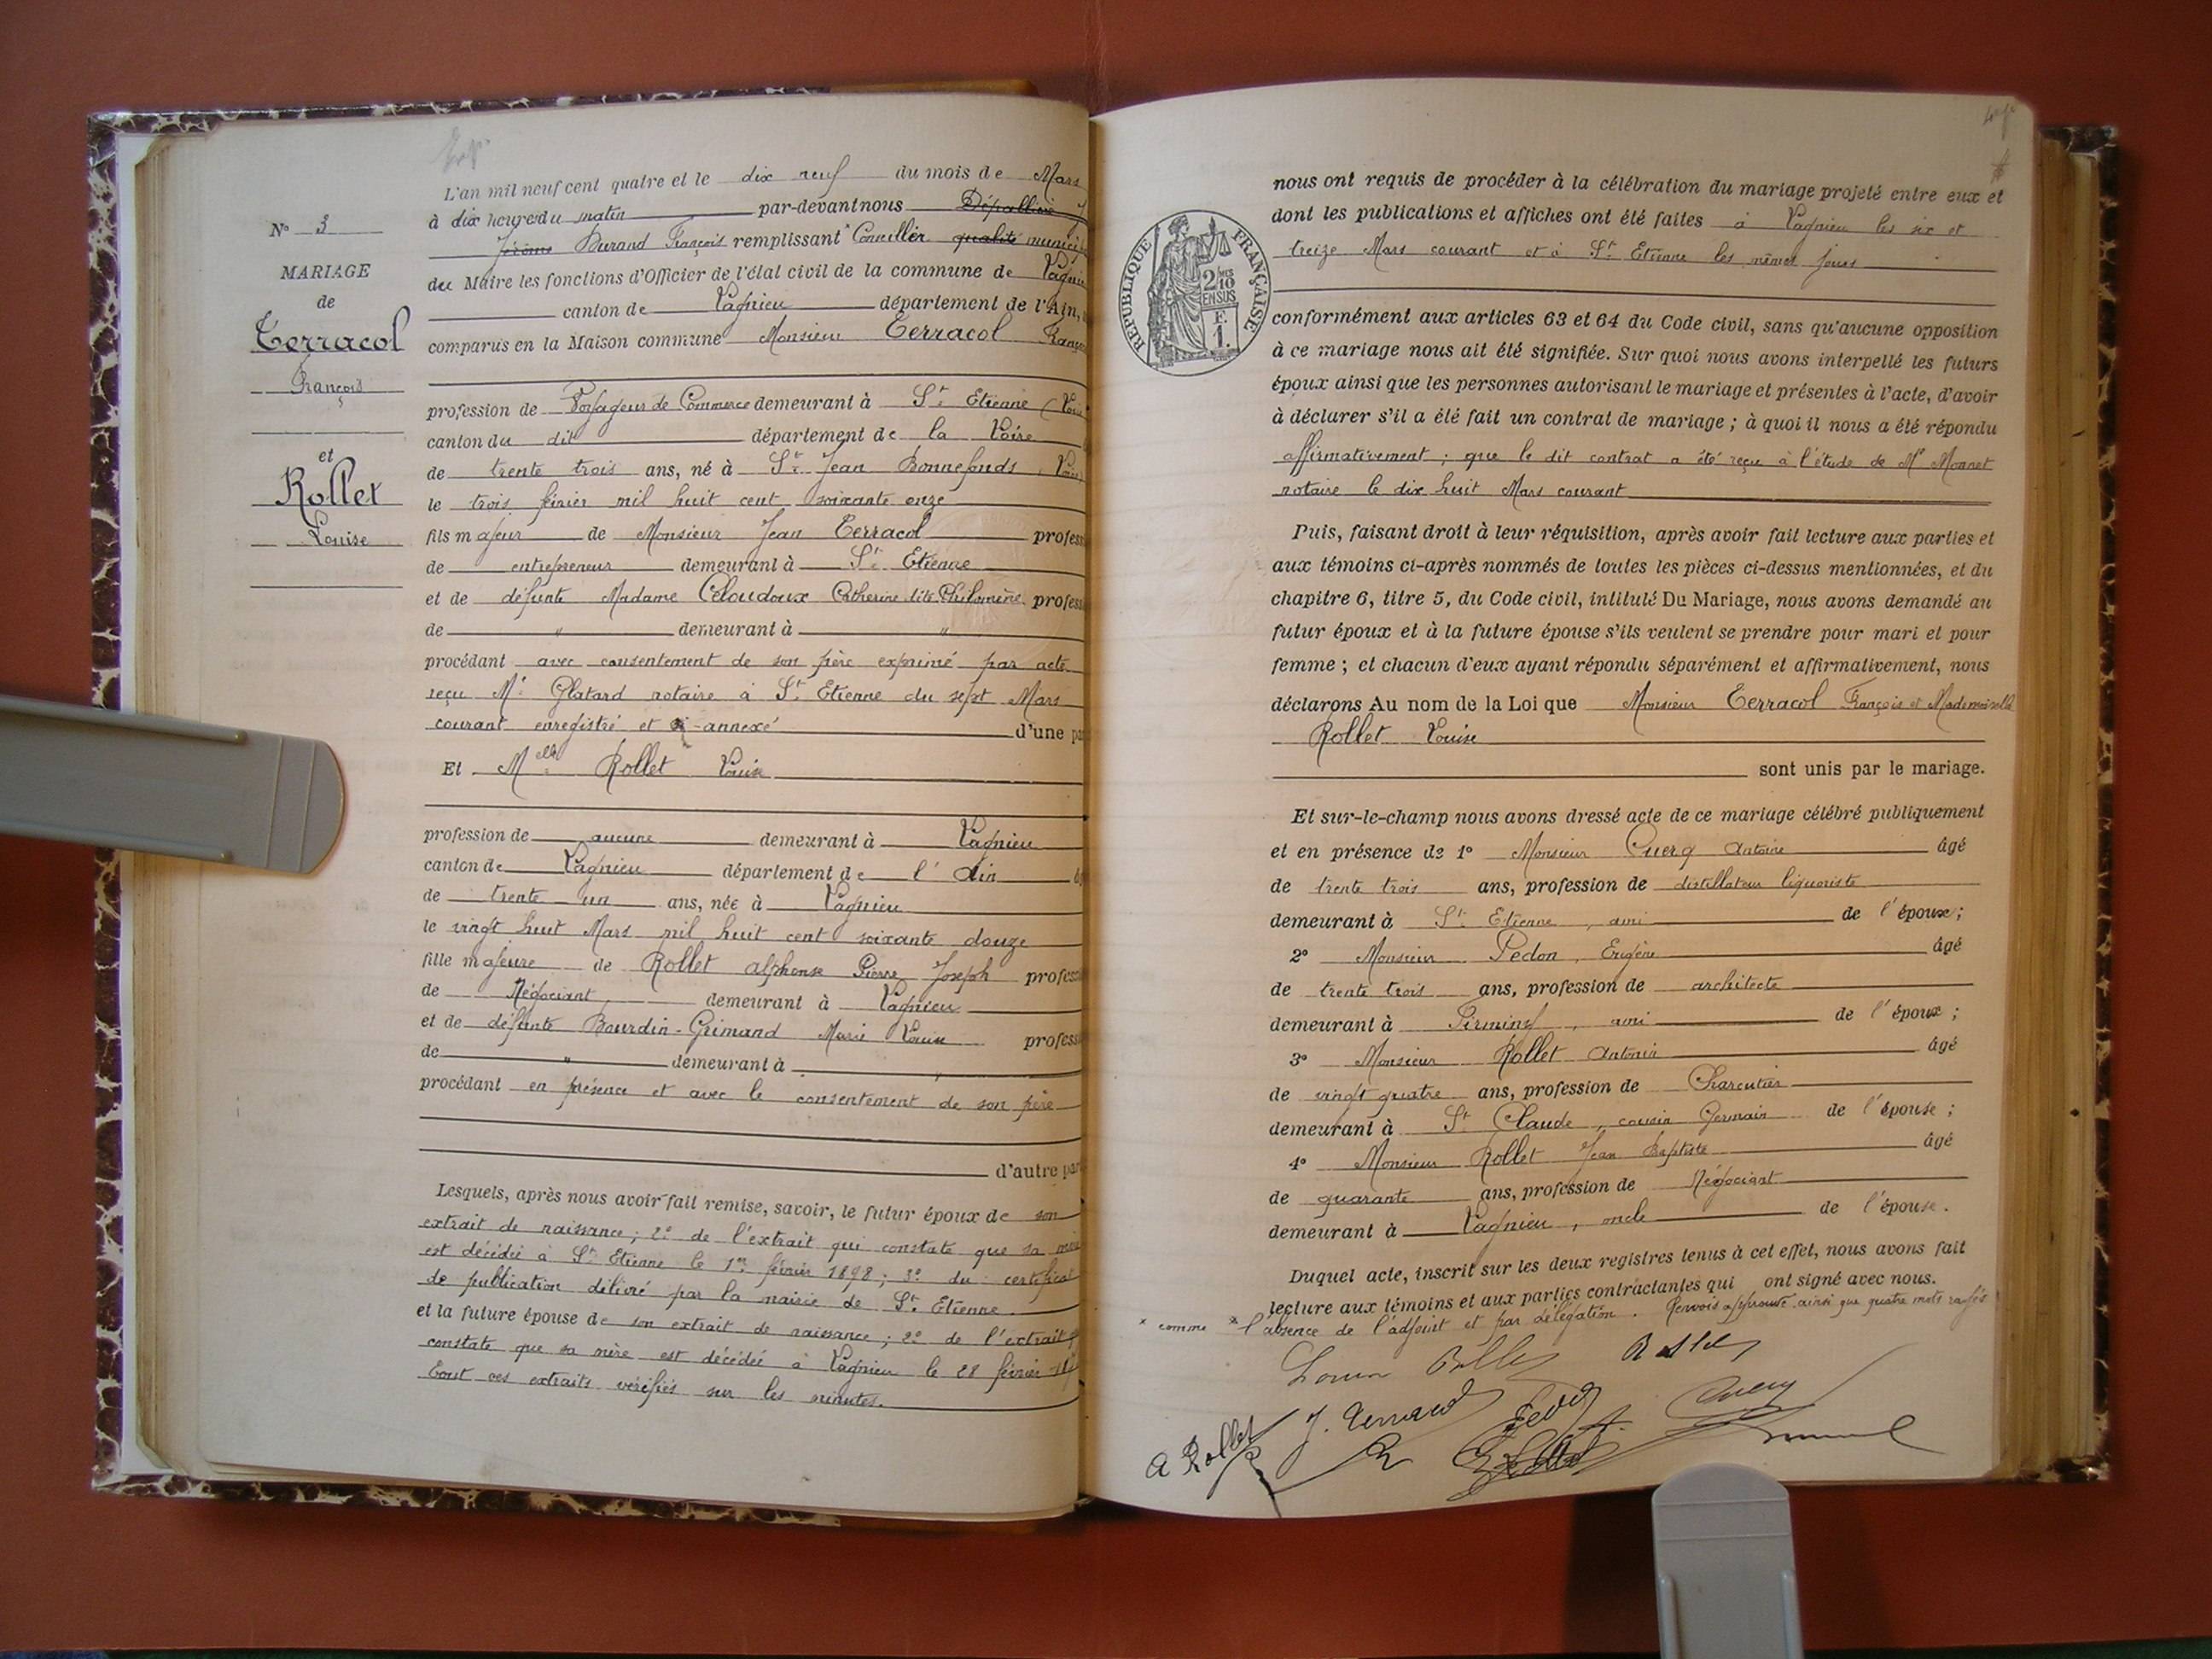 N° 3
MARIAGE
de
Terracol
François
et
Rollet
Louise
L'an mil neuf cent quatre et le dix neuf du mois de Mars
à dix heures du matin par-devant nous
Jérôme Durand François remplissant * Conseiller qualité
du Maire les fonctions d'Officier de l'état civil de la commune de
canton de Lagnieu département de l'Ain,
comparus en la Maison commune Monsieur Terracol
profession de Voyageur de Commerce demeurant à St Etienne
canton du dit département de la Loire
de trente trois ans, né à St Jean Bonnefonds
le trois février mil huit cent soixante onze
fils majeur de Monsieur Jean Terracol
de entrepreneur demeurant à St Etienne
et de défunte Madame Celoudoux Catherine dite Philomène
de " demeurant à "
procédant avec consentement de son père exprimé par acte
reçu Me Glatard notaire à St Etienne du sept Mars
courant enregistré et ci-annexé d'une
Et Melle Rollet Louise
profession de aucune demeurant à Lagnieu
canton de Lagnieu département de l'Ain
de trente un ans, née à Lagnieu
le vingt huit Mars mil huit cent soixante douze
fille majeure de Rollet Alphonse Pierre Joseph
de Négociant, demeurant à Lagnieu
et de défunte Bourdin-Grimand Marie Louise
de " demeurant à "
procédant en présence et avec le consentement de son père
d'autre
Lesquels, après nous avoir fait remise, savoir, le futur époux de son
extrait de naissance ; 2° de l'extrait qui constate que sa
est décédée à St Etienne le 1er février 1898 ; 3° du
de publication délivré par la mairie de St Etienne
et la future épouse de son extrait de naissance ; 2° de l'extrait
constate que sa mère est décédée à Lagnieu le 28 février
Tout ces extraits vérifiés sur les minutes.
RÉPUBLIQUE FRANÇAISE
2/10
EN SUS
F.
1.
nous ont requis de procéder à la célébration du mariage projeté entre eux et
dont les publications et affiches ont été faites à Lagnieu les six et
treize Mars courant et à St Etienne les mêmes jours
conformément aux articles 63 et 64 du Code civil, sans qu'aucune opposition
à ce mariage nous ait été signifiée. Sur quoi nous avons interpellé les futurs
époux ainsi que les personnes autorisant le mariage et présentes à l'acte, d'avoir
à déclarer s'il a été fait un contrat de mariage ; à quoi il nous a été répondu
affirmativement ; que le dit contrat a été reçu à l'étude de Me Monnet
notaire le dix huit Mars courant
Puis, faisant droit à leur réquisition, après avoir fait lecture aux parties et
aux témoins ci-après nommés de toutes les pièces ci-dessus mentionnées, et du
chapitre 6, titre 5, du Code civil, intitulé Du Mariage, nous avons demandé au
futur époux et à la future épouse s'ils veulent se prendre pour mari et pour
femme ; et chacun d'eux ayant répondu séparément et affirmativement, nous
déclarons Au nom de la Loi que Monsieur Terracol François et Mademoiselle
Rollet Louise
sont unis par le mariage.
Et sur-le-champ nous avons dressé acte de ce mariage célébré publiquement
et en présence de 1° Monsieur Cuerq Antoine âgé
de trente trois ans, profession de distillateur liquoriste
demeurant à St Etienne, ami de l'époux ;
2° Monsieur Pedon, Eugène âgé
de trente trois ans, profession de architecte
demeurant à Firminy, ami de l'époux ;
3° Monsieur Rollet Antonin âgé
de vingt quatre ans, profession de Charcutier
demeurant à St Claude, cousin Germain de l'épouse ;
4° Monsieur Rollet Jean Baptiste âgé
de quarante ans, profession de Négociant
demeurant à Lagnieu, oncle de l'épouse.
Duquel acte, inscrit sur les deux registres tenus à cet effet, nous avons fait
lecture aux témoins et aux parties contractantes qui ont signé avec nous.
* comme * l'absence de l'adjoint et par délégation. Renvois approuvé ainsi que quatre mots rayés
A Rollet
J. Terracol